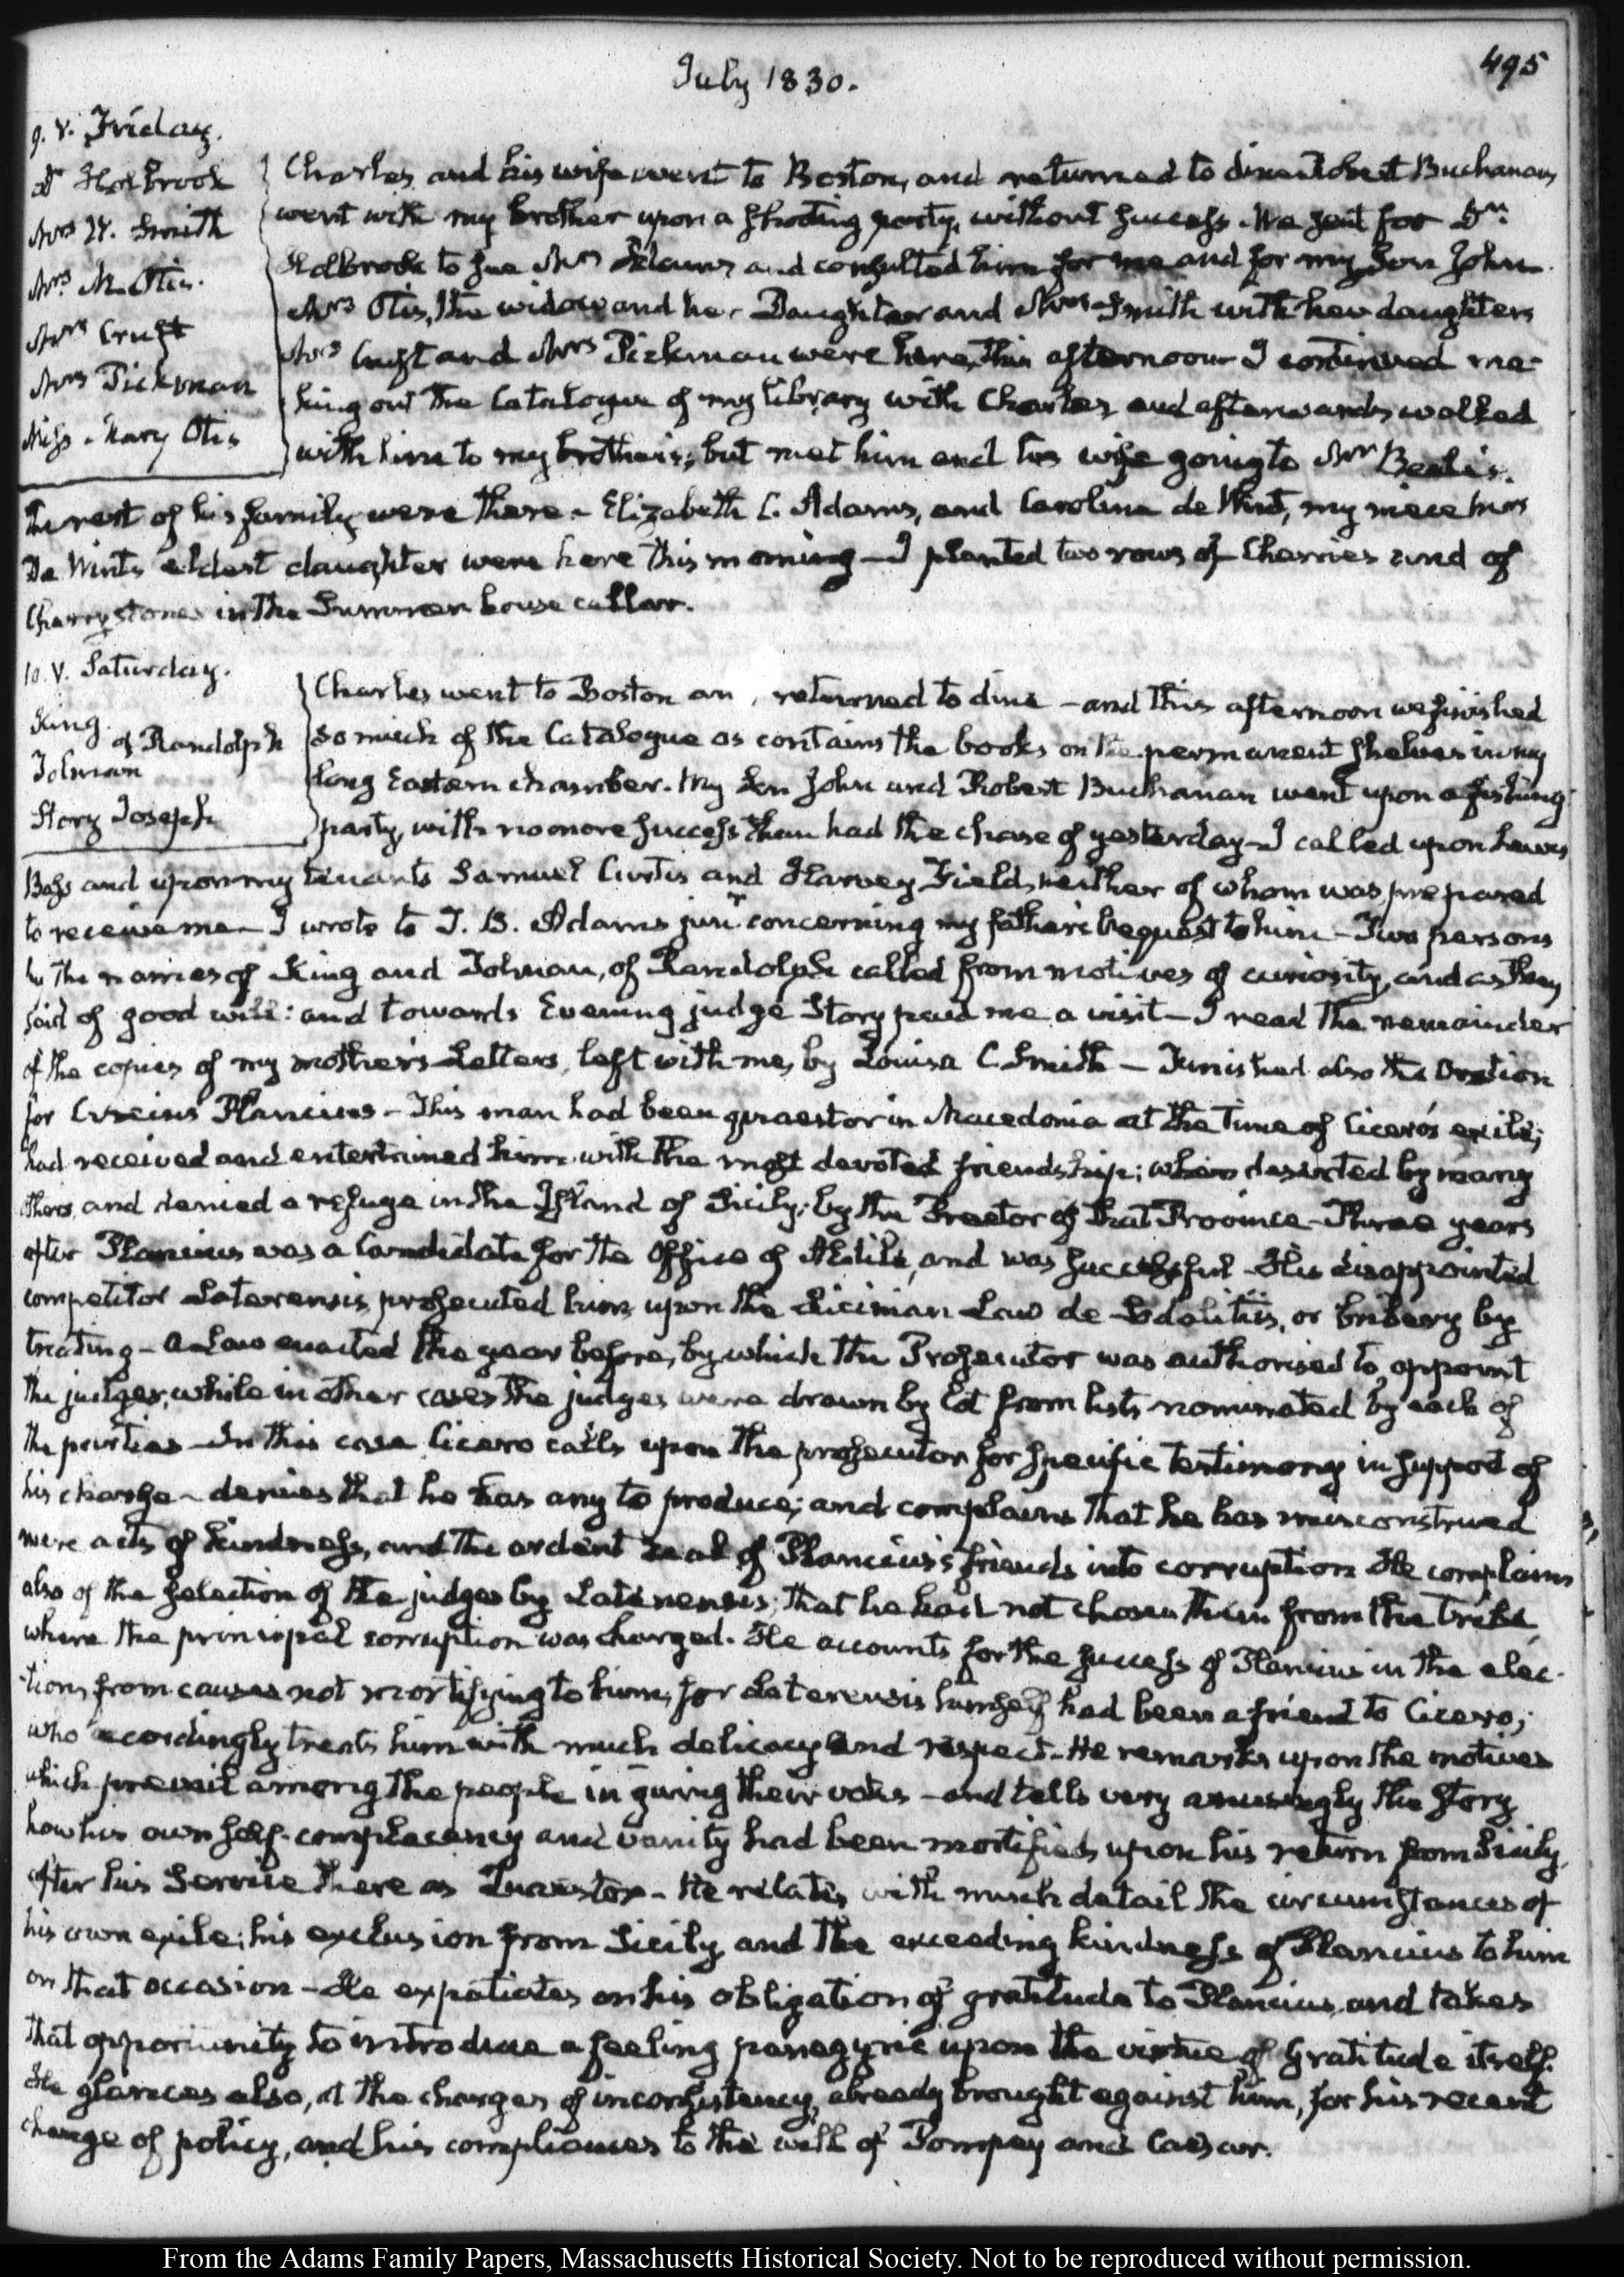 July 1830.
495
9. V. Friday.
Dr Holbrook
Mrs H. Smith
Mrs M. Otis.
Mrs Cruft
Mrs Pickman
Miss Mary Otis
Charles and his wife went to Boston, and returned to dine. Robert Buchanan
went with my brother upon a shooting party, without success. We sent for Dr.
Holbrook to see Mrs Adams and consulted him for me and for my Son John.
Mrs Otis, the widow and her Daughter and Mrs Smith with her daughters
Mrs Cruft and Mrs Pickman were here, this afternoon I continued ma-
king out the Catalogue of my library with Charles and afterwards walked
with him to my brother's; but met him and his wife going to Mrs Beale's.
The rest of his family were there. Elizabeth C. Adams, and Caroline de Wint, my niece Mrs
De Wint's eldest daughter were here this morning — I planted two rows of Cherries and of
Cherry stones in the Summer house cellar.
10. V. Saturday.
King
of Randolph
Tolman
Story Joseph
Charles went to Boston an returned to dine — and this afternoon we finished
so much of the Catalogue as contains the books on the permanent shelves in my
long Eastern chamber. My Son John and Robert Buchanan went upon a fishing
party, with no more success than had the chase of yesterday — I called upon Lewis
Bass and upon my tenants Samuel Curtis and Harvey Field, neither of whom was prepared
to receive me — I wrote to T. B. Adams junr concerning my father's bequest to him — Two persons
by the names of King and Tolman, of Randolph called from motives of curiosity, and as they
said of good will: and towards Evening judge Story paid me a visit — I read the remainder
of the copies of my mother's Letters, left with me, by Louisa C. Smith — Finished also the Oration
for Cneius Plancius — This man had been quaestor in Macedonia at the time of Cicero's exile;
had received and entertained him with the most devoted friendship; when deserted by many
others, and denied a refuge in the Island of Sicily, by the Praetor of that Province — Three years
after Plancius was a Candidate for the Office of AEdile, and was successful — His disappointed
competitor Laterensis, prosecuted him upon the Licinian Law de Sodalitiis, or bribery by
treating — a Law enacted the year before, by which the Prosecutor was authorised to appoint
the judges, while in other cases the judges were drawn by Lot from lists nominated by each of
the parties — In this case Cicero calls upon the prosecutor for specific testimony in support of
his charge — denies that he has any to produce; and complains that he has misconstrued
mere acts of kindness, and the ardent zeal of Plancius's friends into corruption He complains
also of the selection of the judges by Laterensis; that he had not chosen them from the tribe,
where the principal corruption was charged. He accounts for the success of Plancius in the elec-
tion, from causes not mortifying to him, for Laterensis himself had been a friend to Cicero;
who accordingly treats him with much delicacy and respect. He remarks upon the motives
which prevail among the people in giving their votes — and tells very amusingly the story
how his own self-complacency and vanity had been mortified, upon his return from Sicily,
after his Service there as Quaestor — He relates with much detail the circumstances of
his own exile; his exclusion from Sicily, and the exceeding kindness of Plancius to him
on that occasion — He expatiates on his obligation of gratitude to Plancius, and takes
that opportunity to introduce a feeling panegyric upon the virtue of Gratitude itself.
He glances also, at the charges of inconsistency, already brought against him, for his recent
change of policy, and his compliances to the will of Pompey and Caesar.
From the Adams Family Papers, Massachusetts Historical Society. Not to be reproduced without permission.